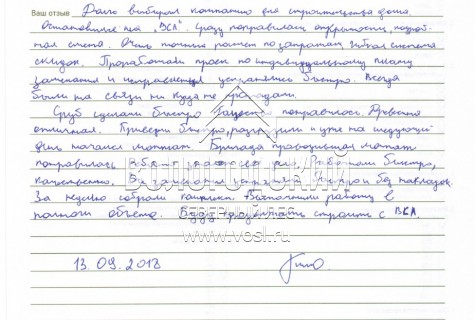 Ваш отзыв Долго выбирали компанию для строительства дома.
Остановились на "ВСЛ". Сразу понравилась открытость, подроб-
ная смета. Очень точный расчет по запратам, гибкая система
скидок. Проработали проект по индивидуальному плану
замечания и исправления устранялись быстро. Всегда
были на связи никуда не пропадали.
Сруб сделали быстро понравилось. Древесина
отличная. Привезли быстро, разгрузили и уже на следующий
день начался монтаж. Бригада проводившая монтаж
понравилась. Работали быстро,
качественно. и без накладок.
За неделю собрали Выполнили работу в
полном объеме. Будем продолжать строить с ВСЛ
ВОЛОГОДСКИЙ
www.vosl.ru
13.09.2018